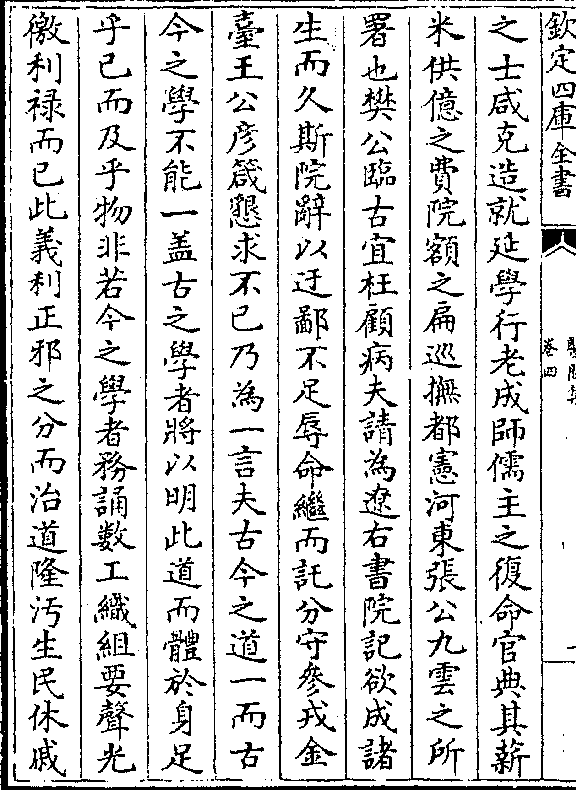 欽定四庫全書
卷四
之士咸克造就延學行老成師儒主之復命官典其薪
米供億之費院額之扁巡撫都憲河東張公九雲之所
署也樊公臨古宜枉顧病夫請為遼右書院記欲成諸
生而久斯院辭以迂鄙不足辱命繼而託分守參戎金
臺王公彥箴懇求不已乃為一言夫古今之道一而古
今之學不能一盖古之學者將以明此道而體於身足
乎已而及乎物非若今之學者務誦数工織組要聲光
徼利禄而已此義利正邪之分而治道隆汚生民休戚